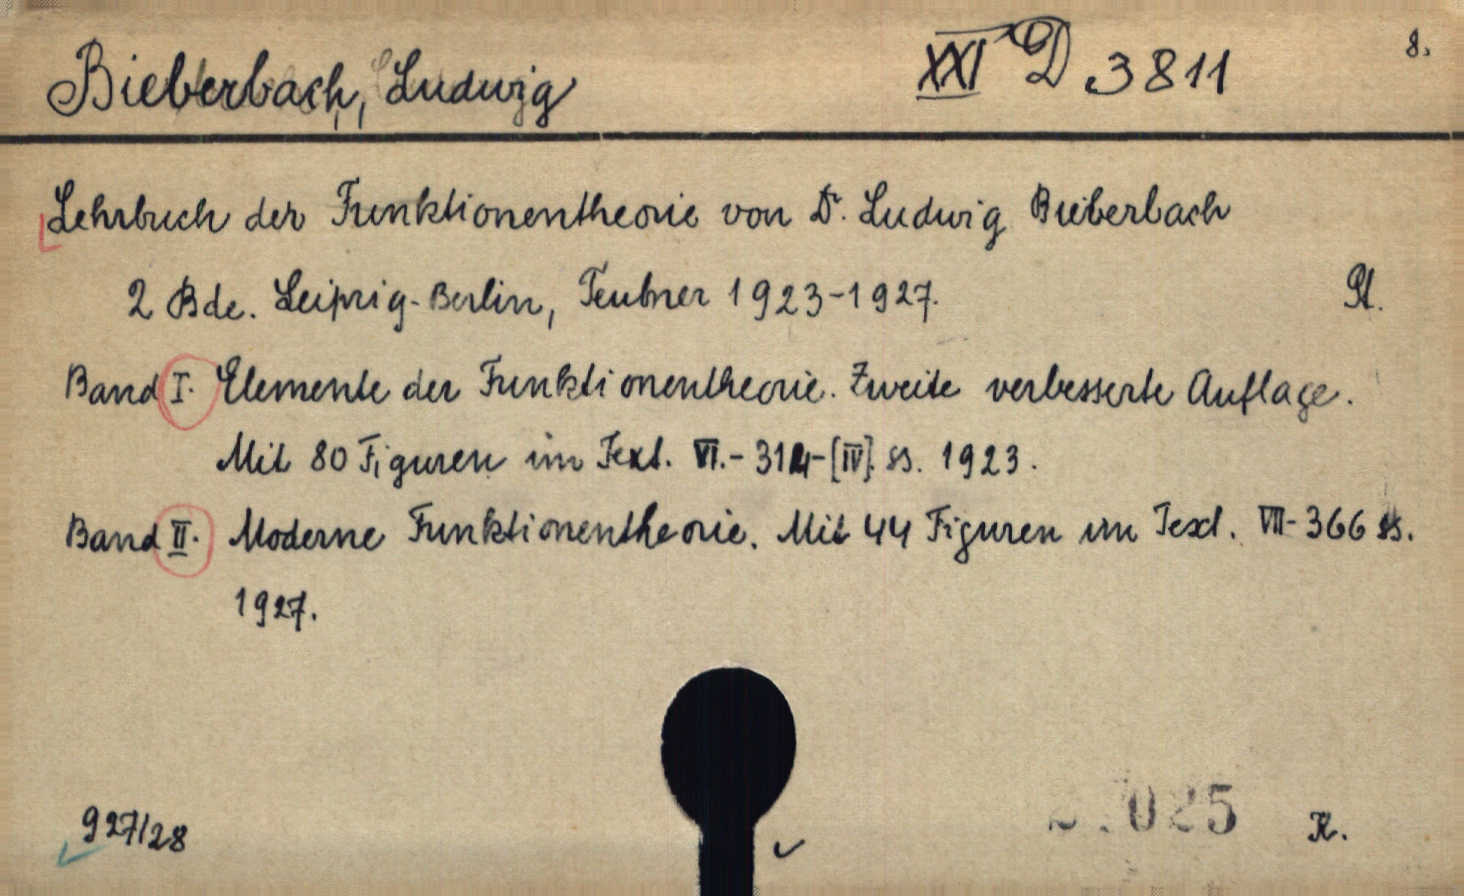 Bieberbach, Ludwig
XXI D 3811
8.
Lehrbuch der Funktionentheorie von Dr. Ludwig Bieberbach
2 Bde. Leipzig-Berlin, Teubner 1923-1927.
Band I. Elemente der Funktionentheorie. Zweite verbesserte Auflage.
Mit 80 Figuren im Text. VI.-314-[IV]. ss. 1923.
Band II. Moderne Funktionentheorie. Mit 44 Figuren im Text. VII-366 ss.
1927.
927/28
025
R.